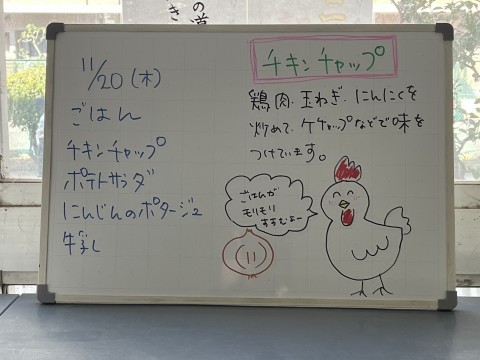 の
き
11/20(木)
ごはん
チキンチャップ
ポテトサラダ
にんじんのポタージュ
牛乳
チキンチャップ
鶏肉、玉ねぎ、にんにくを
炒めて、ケチャップなどで味を
つけています。
ごはんが
モリモリ
すすむよー